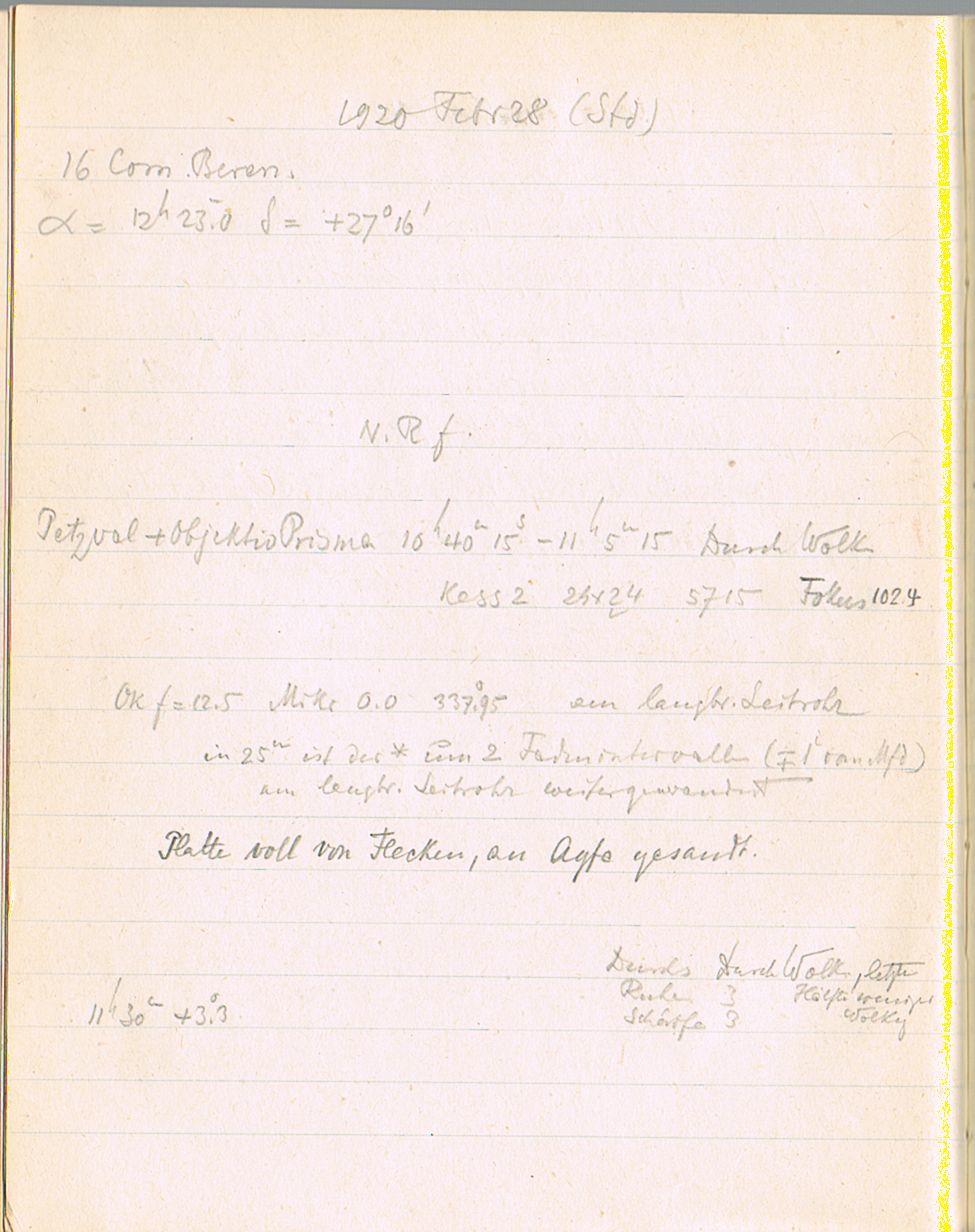 1920 Febr 28 (Std)
16 Com. Beren.
α = 12h 23m.0 δ = +27° 16'
N. R f.
Petzval + Objektiv Prisma 10h 40m 15s - 11h 5m 15 Durch Wolk
Kass 2 24x24 5715 Fokus 102.4
Ok f = 12.5 Mikr 0.0 337°.95 am langbr. Leitrohr
in 25m ist der * um 2 Fadenintervalle (∓ 1' von Mfd)
am langbr. Leitrohr weitergewandert
Platte voll von Flecken, an Agfa gesandt.
Durchs Durch Wolk, letzte
Ruhe 3 Hälfte weniger
Schärfe 3 Wolkig
11h 30m +3°.3